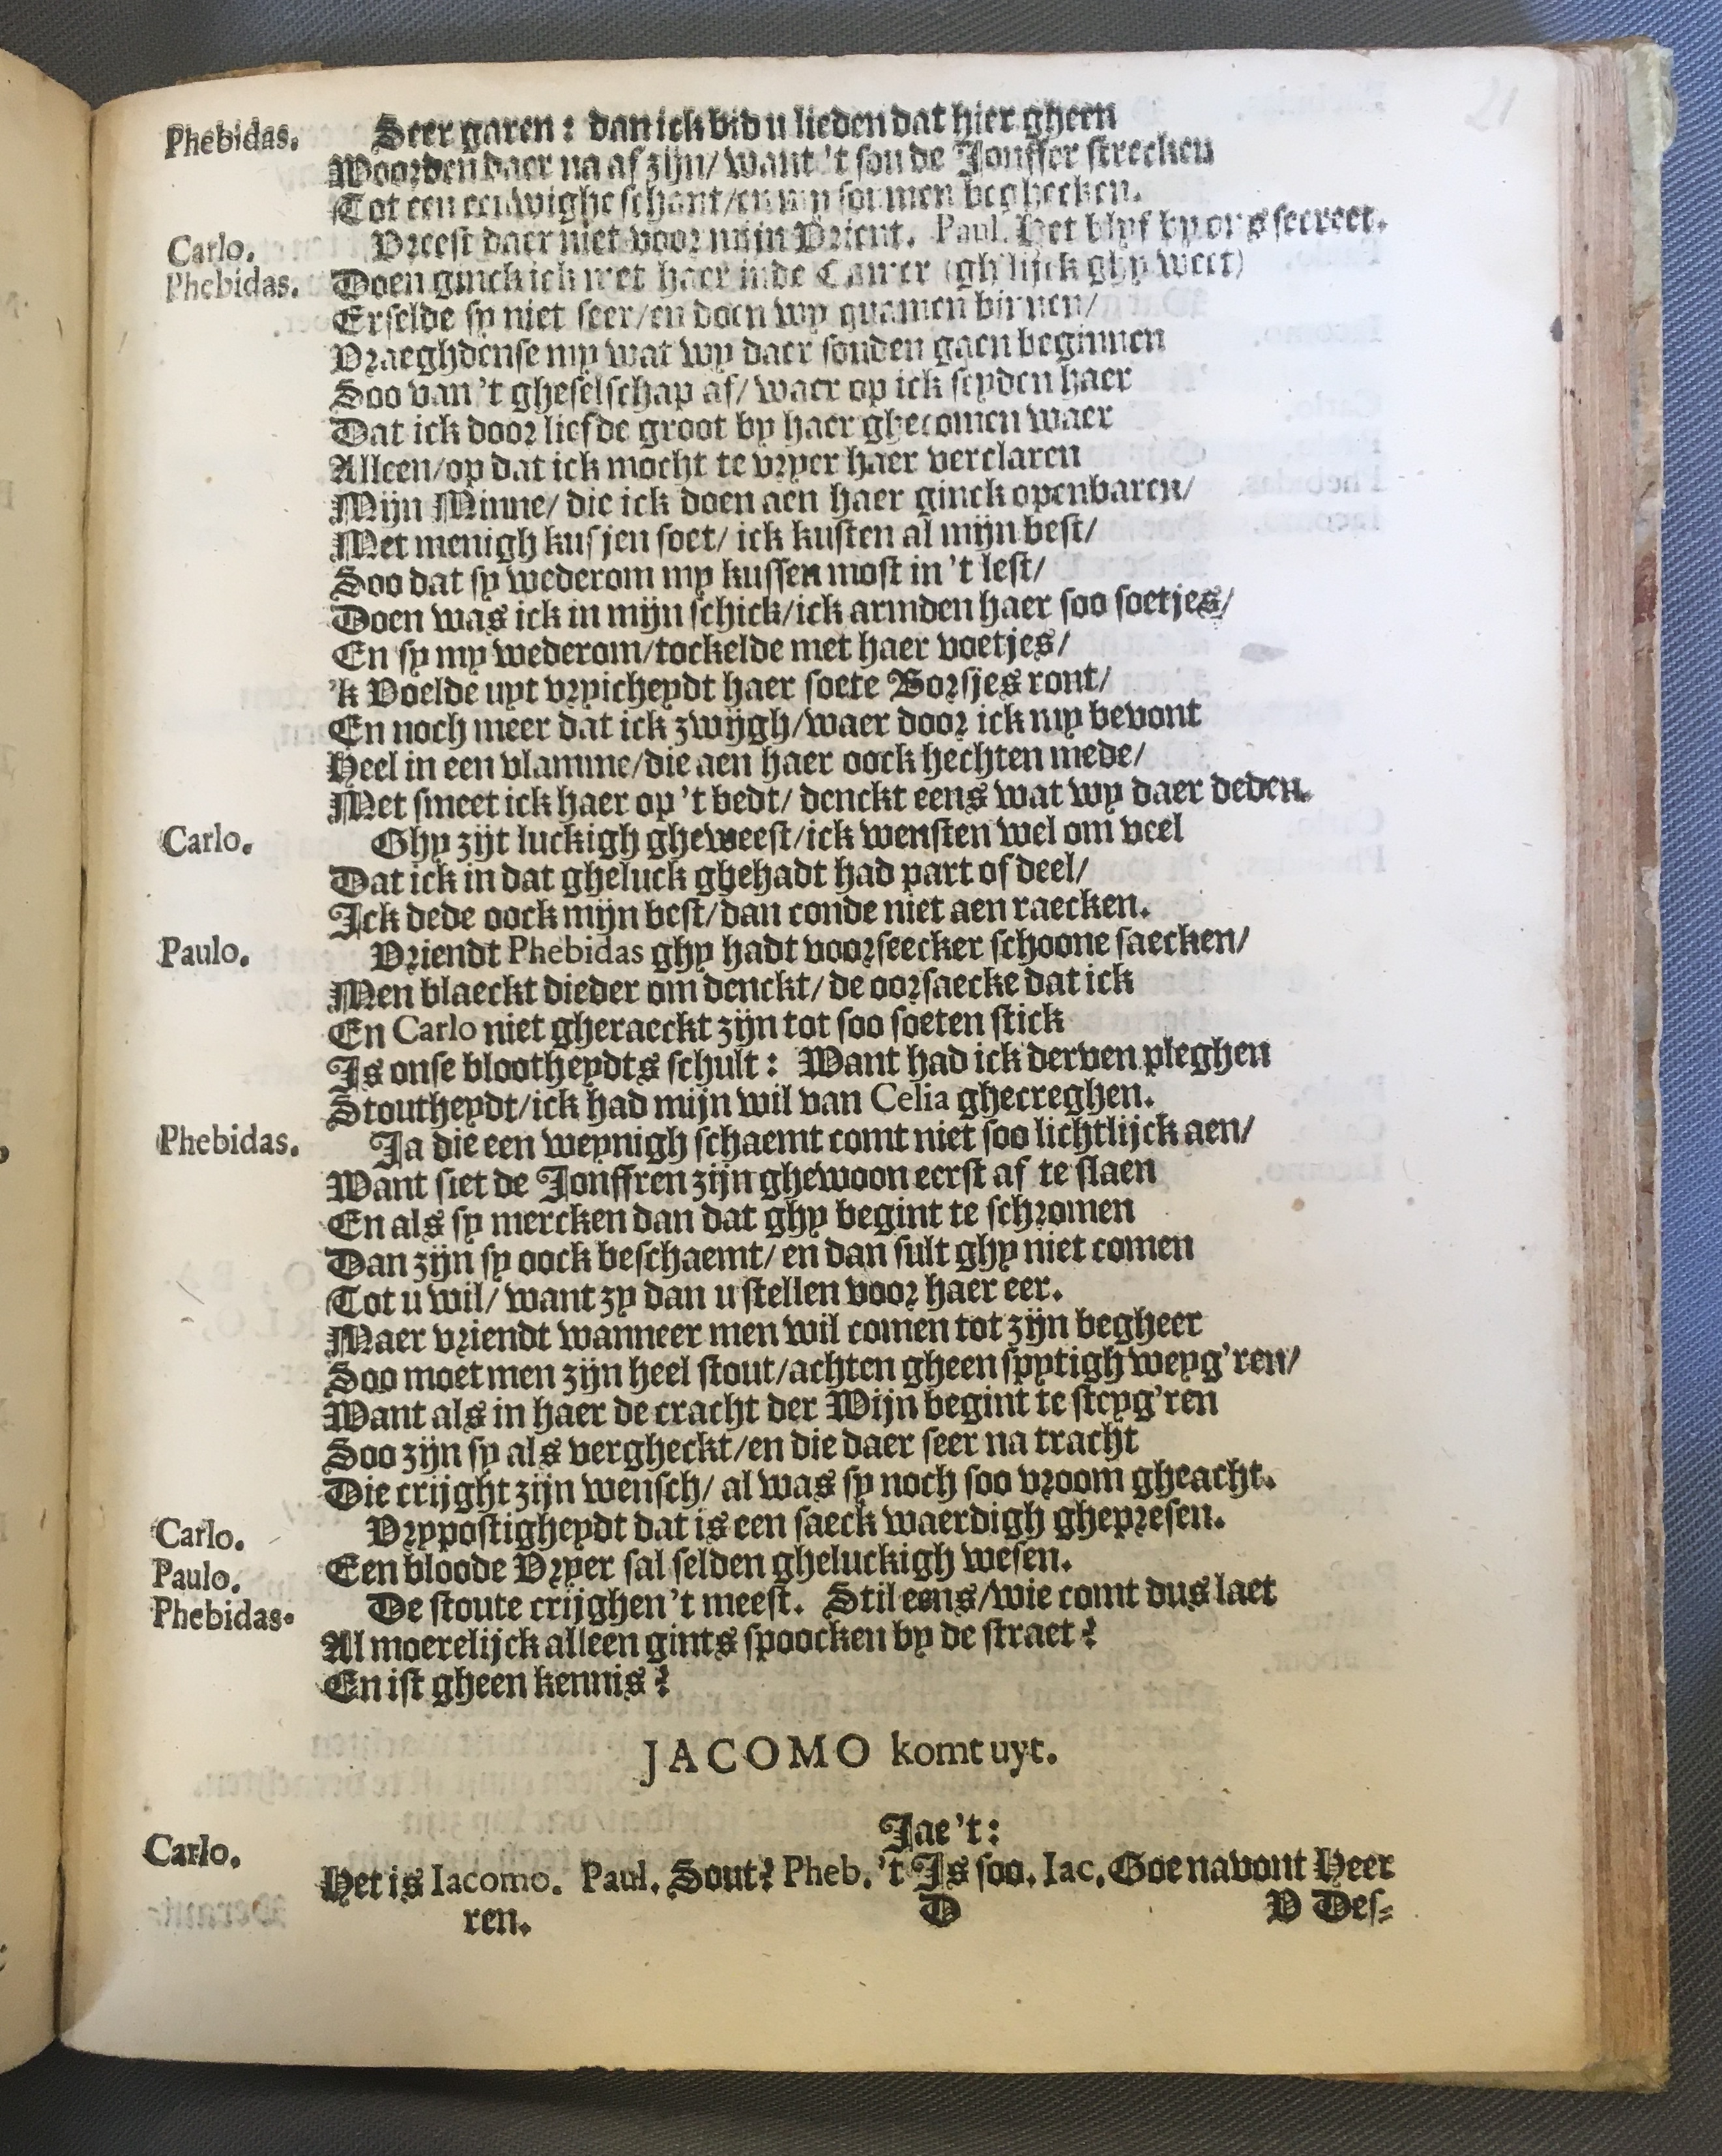 21
Phebidas. Seer garen: dan ick bid u lieden dat hier gheen
Woorden daer na af zijn/ want 't sou de Jonffer strecken
Tot een eeuwighe schant/en my sou men beghecken.
Carlo. Vreest daer niet voor mijn Vrient. Paul. Het blyf by ons secreet.
Phebidas. Doen ginck ick met haer inde Camer (gh'lijck ghy weet)
Erselde sy niet seer/en doen wy quamen binnen/
Vraeghdense my wat wy daer souden gaen beginnen
Soo van 't gheselschap af/ waer op ick seyden haer
Dat ick door liefde groot by haer ghecomen waer
Alleen/op dat ick mocht te vryer haer verclaren
Mijn Minne/ die ick doen aen haer ginck openbaren/
Met menigh kusjen soet/ ick kusten al mijn best/
Soo dat sy wederom my kussen most in 't lest/
Doen was ick in mijn schick/ick armden haer soo soetjes/
En sy my wederom/tockelde met haer voetjes/
'k Voelde uyt vryicheydt haer soete Borsjes ront/
En noch meer dat ick zwijgh/waer door ick my bevont
Heel in een vlamme/die aen haer oock hechten mede/
Met smeet ick haer op 't bedt/ denckt eens wat wy daer deden.
Carlo. Ghy zijt luckigh gheweest/ick wensten wel om veel
Dat ick in dat gheluck ghehadt had part of deel/
Ick dede oock mijn best/dan conde niet aen raecken.
Paulo. Vriendt Phebidas ghy hadt voorseecker schoone saecken/
Men blaeckt dieder om denckt/ de oorsaecke dat ick
En Carlo niet gheraeckt zijn tot soo soeten stick
Is onse blootheydts schult: Want had ick derven pleghen
Stoutheydt/ick had mijn wil van Celia ghecreghen.
Phebidas. Ja die een weynigh schaemt comt niet soo lichtlijck aen/
Want siet de Jonffren zijn ghewoon eerst af te slaen
En als sy mercken dan dat ghy begint te schromen
Dan zijn sy oock beschaemt/ en dan sult ghy niet comen
Tot u wil/ want zy dan u stellen voor haer eer.
Maer vriendt wanneer men wil comen tot zijn begheer
Soo moet men zijn heel stout/achten gheen spytigh weyg'ren/
Want als in haer de cracht der Wijn begint te steyg'ren
Soo zijn sy als vergheckt/en die daer seer na tracht
Die crijght zijn wensch/ al was sy noch soo vroom gheacht.
Carlo. Vrypostigheydt dat is een saeck waerdigh ghepresen.
Paulo. Een bloode Vryer sal selden gheluckigh wesen.
Phebidas. De stoute crijghen 't meest. Stil eens/wie comt dus laet
Al moerelijck alleen gints spoocken by de straet?
En ist gheen kennis?
JACOMO komt uyt.
Carlo. Jae 't:
Het is Iacomo. Paul. Sout? Pheb. 't Is soo. Iac. Goenavont Heer
ren. D V Des-